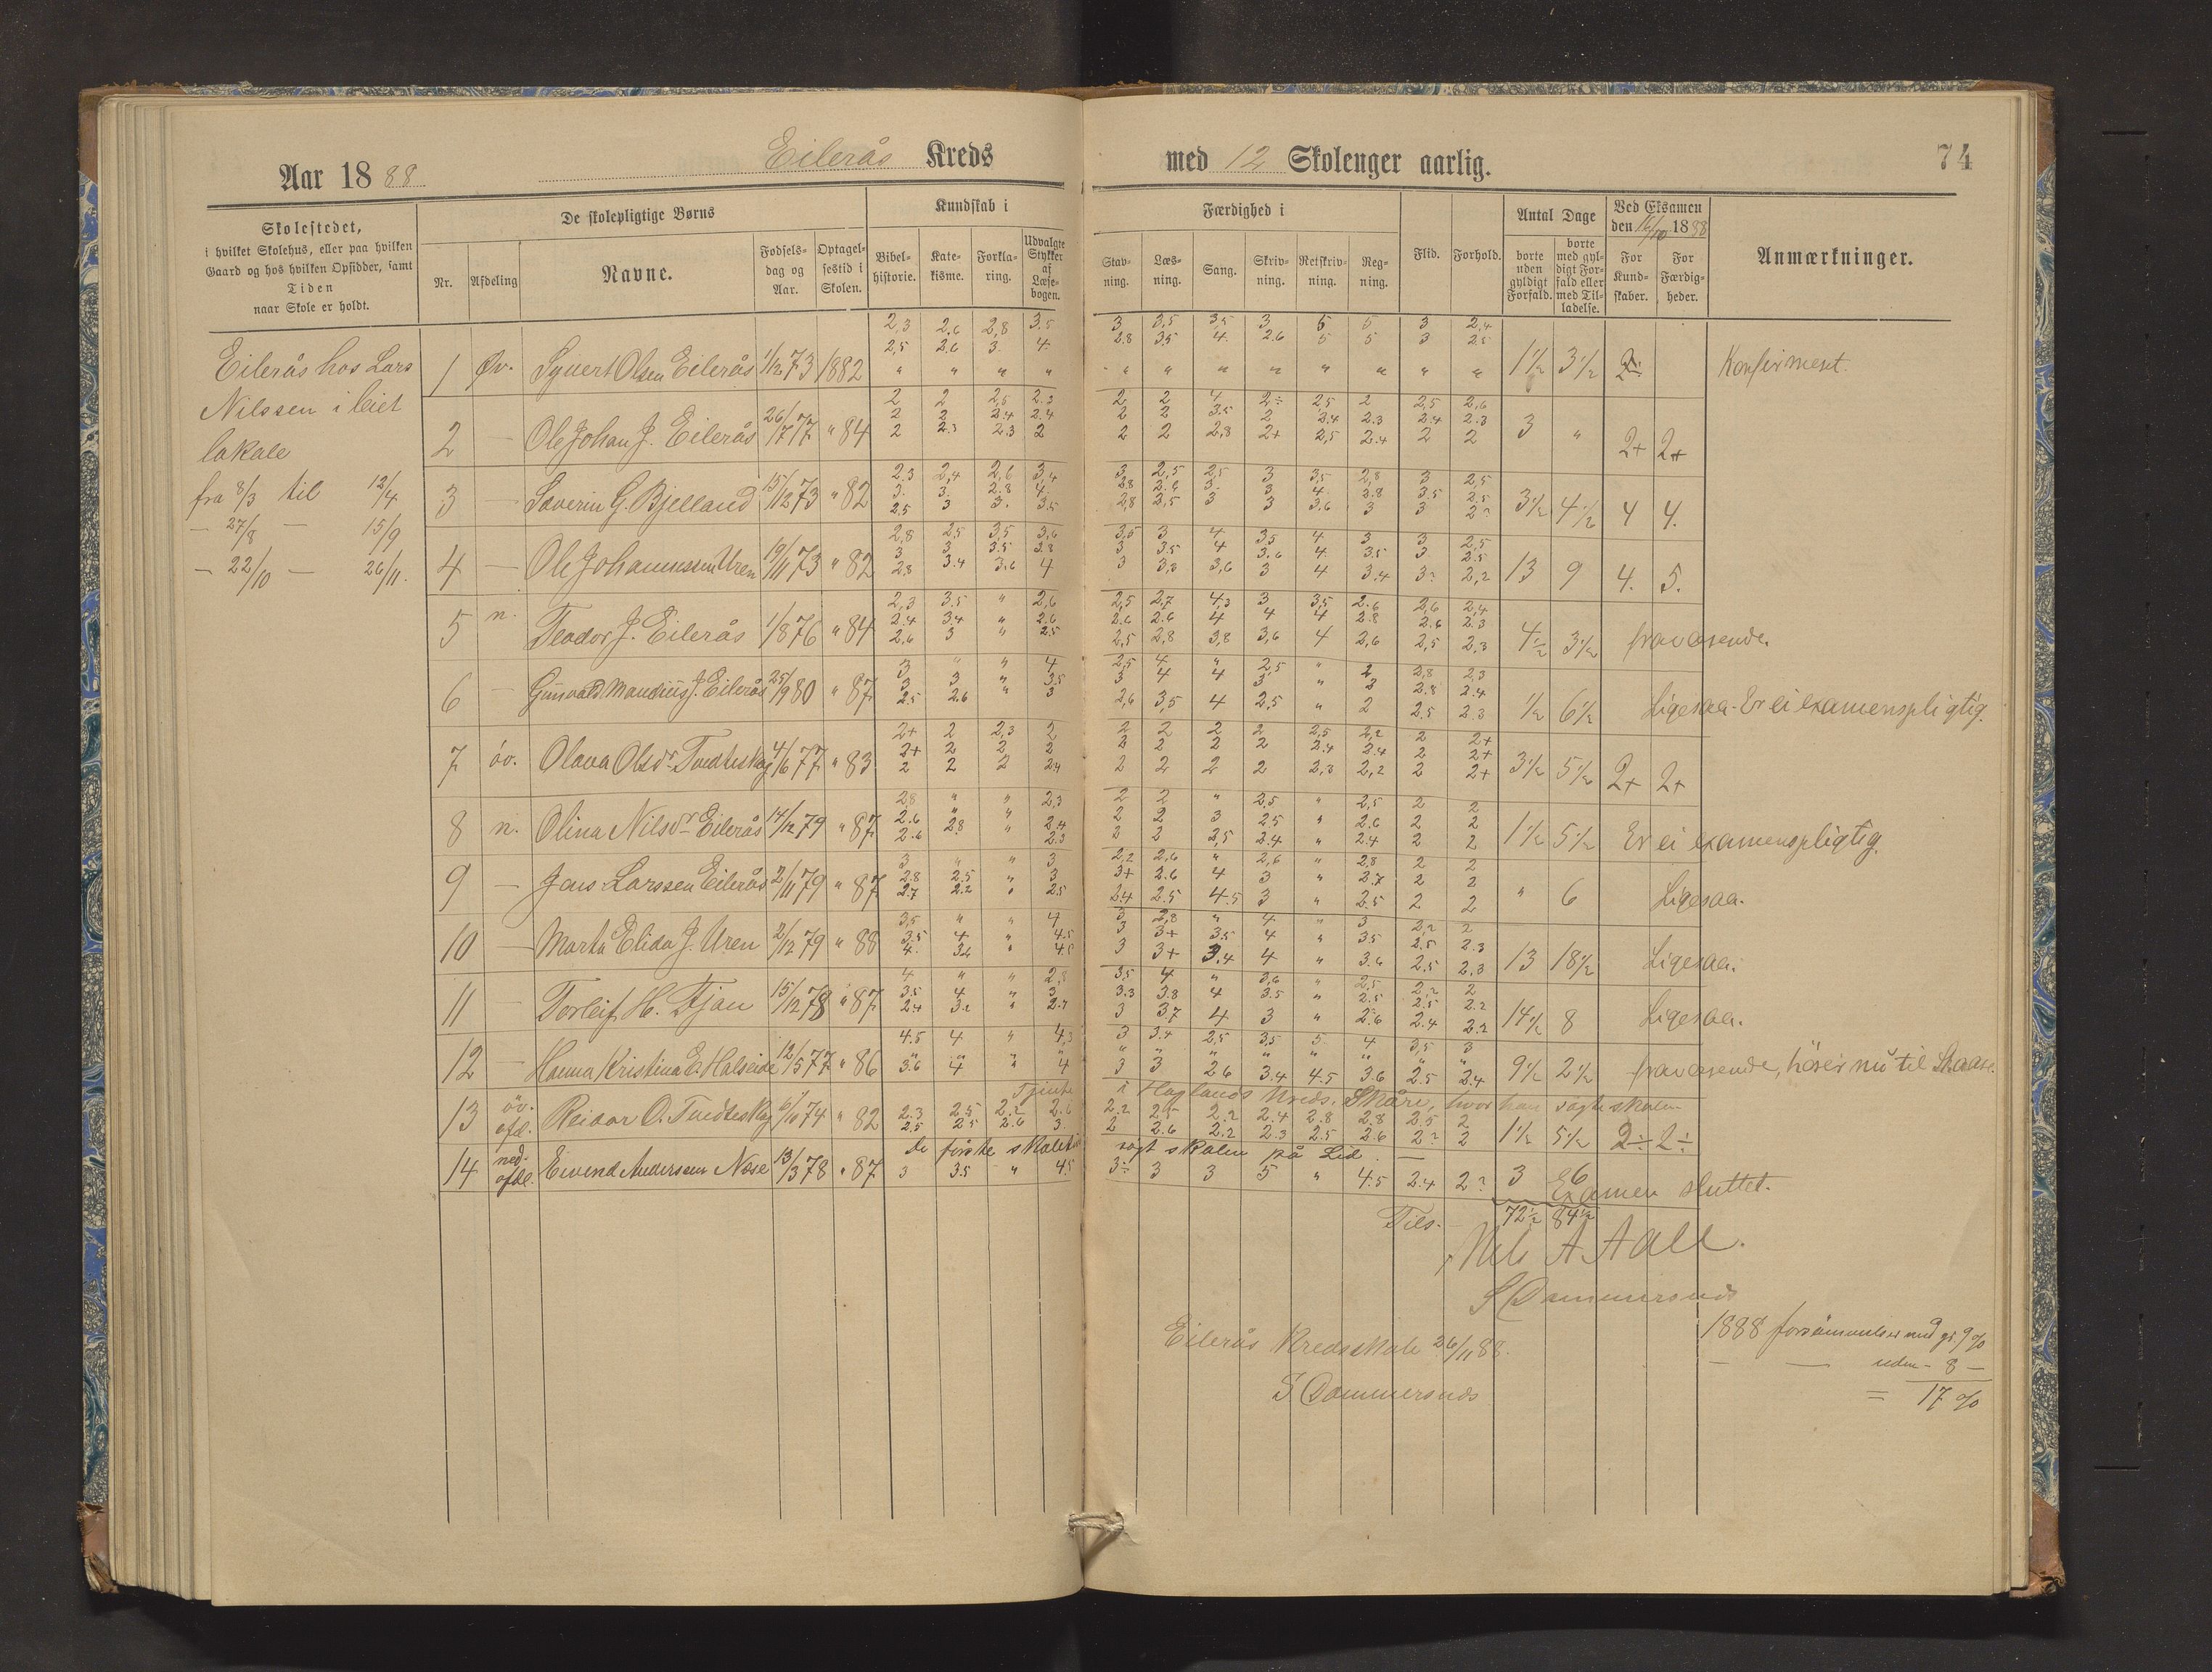 Aar 1888
Eilerås Kreds
med 12 Skolenger aarlig.
74
Skolestedet,
i hvilket Skolehus, eller paa hvilken
Gaard og hos hvilken Opsidder, samt
Tiden
naar Skole er holdt.
De skolepligtige Børns
Nr.
Afdeling
Navne.
Fødsels-
dag og
Aar.
Optagel-
sestid i
Skolen.
Kundskab i
Bibel-
historie.
Kate-
kisme.
Forkla-
ring.
Udvalgte
Stykker
af
Læse-
bogen.
Færdighed i
Stav-
ning.
Læs-
ning.
Sang.
Skriv-
ning.
Retskriv-
ning.
Reg-
ning.
Flid.
Forhold.
Antal Dage
borte
uden
gyldigt
Forfald.
borte
med gyl-
digt For-
fald eller
med Til-
ladelse.
Ved Eksamen
den 16/10 1888
For
Kund-
skaber.
For
Færdig-
heder.
Anmærkninger.
Eilerås hos Lars
Nilssen i leiet
lokale
fra 8/3 til 12/4
— 27/8 — 15/9
— 22/10 — 26/11.
2,3 2.6 2,8 3.5 3 3,5 3,5 3 5 5 3 2,4
2,5 2.6 3. 4. 2.8 3.5 4. 2.6 5 5 3 2.5
1 Øv. Syvert Olsen Eilerås 1/12 73 1882 " " " " " " " " " " " " 1 1/2 3 1/2 2÷ Konfirmert.
2 2 2,5 2.3 2 2 4 2÷ 2,5 2 2,5 2,6
2 2 2.4 2.4 2 2 3.5 2 2.4 2.3 2.4 2.3
2 — Ole Johan J. Eilerås 26/1 77 " 84 2 2.3 2.3 2 2 2 2,8 2+ 2,5 2.4 2 2 3 " 2+ 2+
2.3 2,4 2,6 3,4 3 2,5 2,5 3 3,5 2,8 3 2,5
3. 3. 2.8 4. 2.8 2.6 3. 3 4. 2.8 3.5 2.5
3 — Severin G. Bjelland 15/12 73 " 82 2.5 3 3. 3.5 2,8 2,5 3 3 3.6 3 3 2? 3 1/2 4 1/2 4 4.
2,8 2,5 3,5 3,6 3,5 3 4 3,5 4 3 3 2,5
3 3 3.5 3.8 3 3.5 4 3.6 4. 3.5 3. 2.5
4 — Ole Johannessen Uren 19/11 73 " 82 2.8 3.4 3,6 4 3 3,3 3,6 3 4 3.4 3? 2,2 13 9 4. 5.
2,3 3.5 " 2,6 2,5 2,7 4,3 3 3,5 2.6 2,6 2,4
2.4 3.4 " 2.6 2.6 2.6 4 4 4 2.8 2.6 2.3
5 n. Teodor J. Eilerås 1/8 76 " 84 2.6 3 " 2.5 2,5 2,8 3,8 3,6 4 2,6 2,5 2,3 4 1/2 3 1/2 fraværende.
3 " " 4 2,5 4 " 2,5 " 2 2,8 2,3
3 3 " 3.5 3 4 4 3 " 2 2.8 2.4
6 — Gunvald Maudius J. Eilerås 25/9 80 " 87 2.5 2.6 " 3 2,6 3,5 4 2,5 " 2 2.5 2.3 1/2 6 1/2 Ligesaa. Er ei examenspligtig.
2+ 2 2,3 2 2 2 2 2 2,5 2,2 2 2+
2+ 2 2 2 2 2 2 2 2.4 2.4 2 2+
7 öv. Olava Olsdr Tvedteskog 4/6 77 " 83 2 2 2 2.4 2 2 2 2 2,3 2,2 2 2+ 3 1/2 5 1/2 2+ 2+
2,8 " " 2,3 2 2 " 2,5 " 2,5 2 2
2.6 " " 2.4 2 2 3 2.5 " 2.6 2 2
8 n. Olina Nilsdr Eilerås 14/12 79 " 87 2.6 2.8 " 2.3 2 2 2,5 2.4 " 2.4 2 2 1 1/2 5 1/2 Er ei examenspligtig.
3 " " 3 2,2 2,6 " 2,6 " 2,8 2 2
2.8 2.5 " 3 3+ 2.6 4 3 " 2.7 2 2
9 — Jens Larssen Eilerås 2/11 79 " 87 2.7 2.2 " 2.5 2.4 2.5 4.5 3 " 2.5 2 2 " 6 Ligesaa.
3,5 " " 4 3 2,8 " 4 " 3 2,2 2
3.5 4 " 4.5 3 3+ 3.5 4 " 3.5 2.5 2.3
10 — Marta Elida J. Uren 2/12 79 " 88 4. 3.6 " 4.5 3 3+ 3.4 4 " 3.6 2.5 2,3 13 18 1/2 Ligesaa.
4 " " 2,3 3.5 4 " 3,6 " 2,5 2,2 2
3.5 4 " 3 3.3 3.8 4 3.5 " 2.5 2.5 2.2
11 — Torleif H. Tjan 15/12 78 " 87 2.4 3.2 " 2.7 3 3.7 4 3 " 2.6 2.4 2.2 14 1/2 8 Ligesaa.
4.5 4 " 4,3 3 3.4 2,5 3,5 5 4 3,5 3
12 — Hanna Kristina E. Halseide 12/5 77 " 86 3.6 4 " 4 3 3 2.6 3.4 4.5 3.6 2.5 2.4 9 1/2 2 1/2 fraværende, hører nu til
Tjente i Hoglands kreds, Skåre, hvor han søgte skolen
13 öv. afd. Reidar O. Tvedteskog 6/11 74 " 82 2.3 2.5 2.2 2.6 2.2 2.5 2.2 2.4 2.8 2.8 2.5 2
2.5 2.5 2.6 3. 2 2.6 2.2 2.3 2.5 2.6 2? 2 1 1/2 5 1/2 2÷ 2÷
De første skoletid søgt skolen på Lid. —
14 ned. afdl. Eivend Andersen Nese 13/3 78 " 87 3 3.5 " 4.5 3÷ 3 3 5 " 4.5 2.4 2? 3 6
Examen sluttet.
Tils. 72 1/2 84 1/2
A Aall.
S Dommersnes
Eilerås Kredsskole 26/11 88.
S Dommersnes
1888 forsömmelser med gr. 9 %
— — uden - 8 —
= 17 %